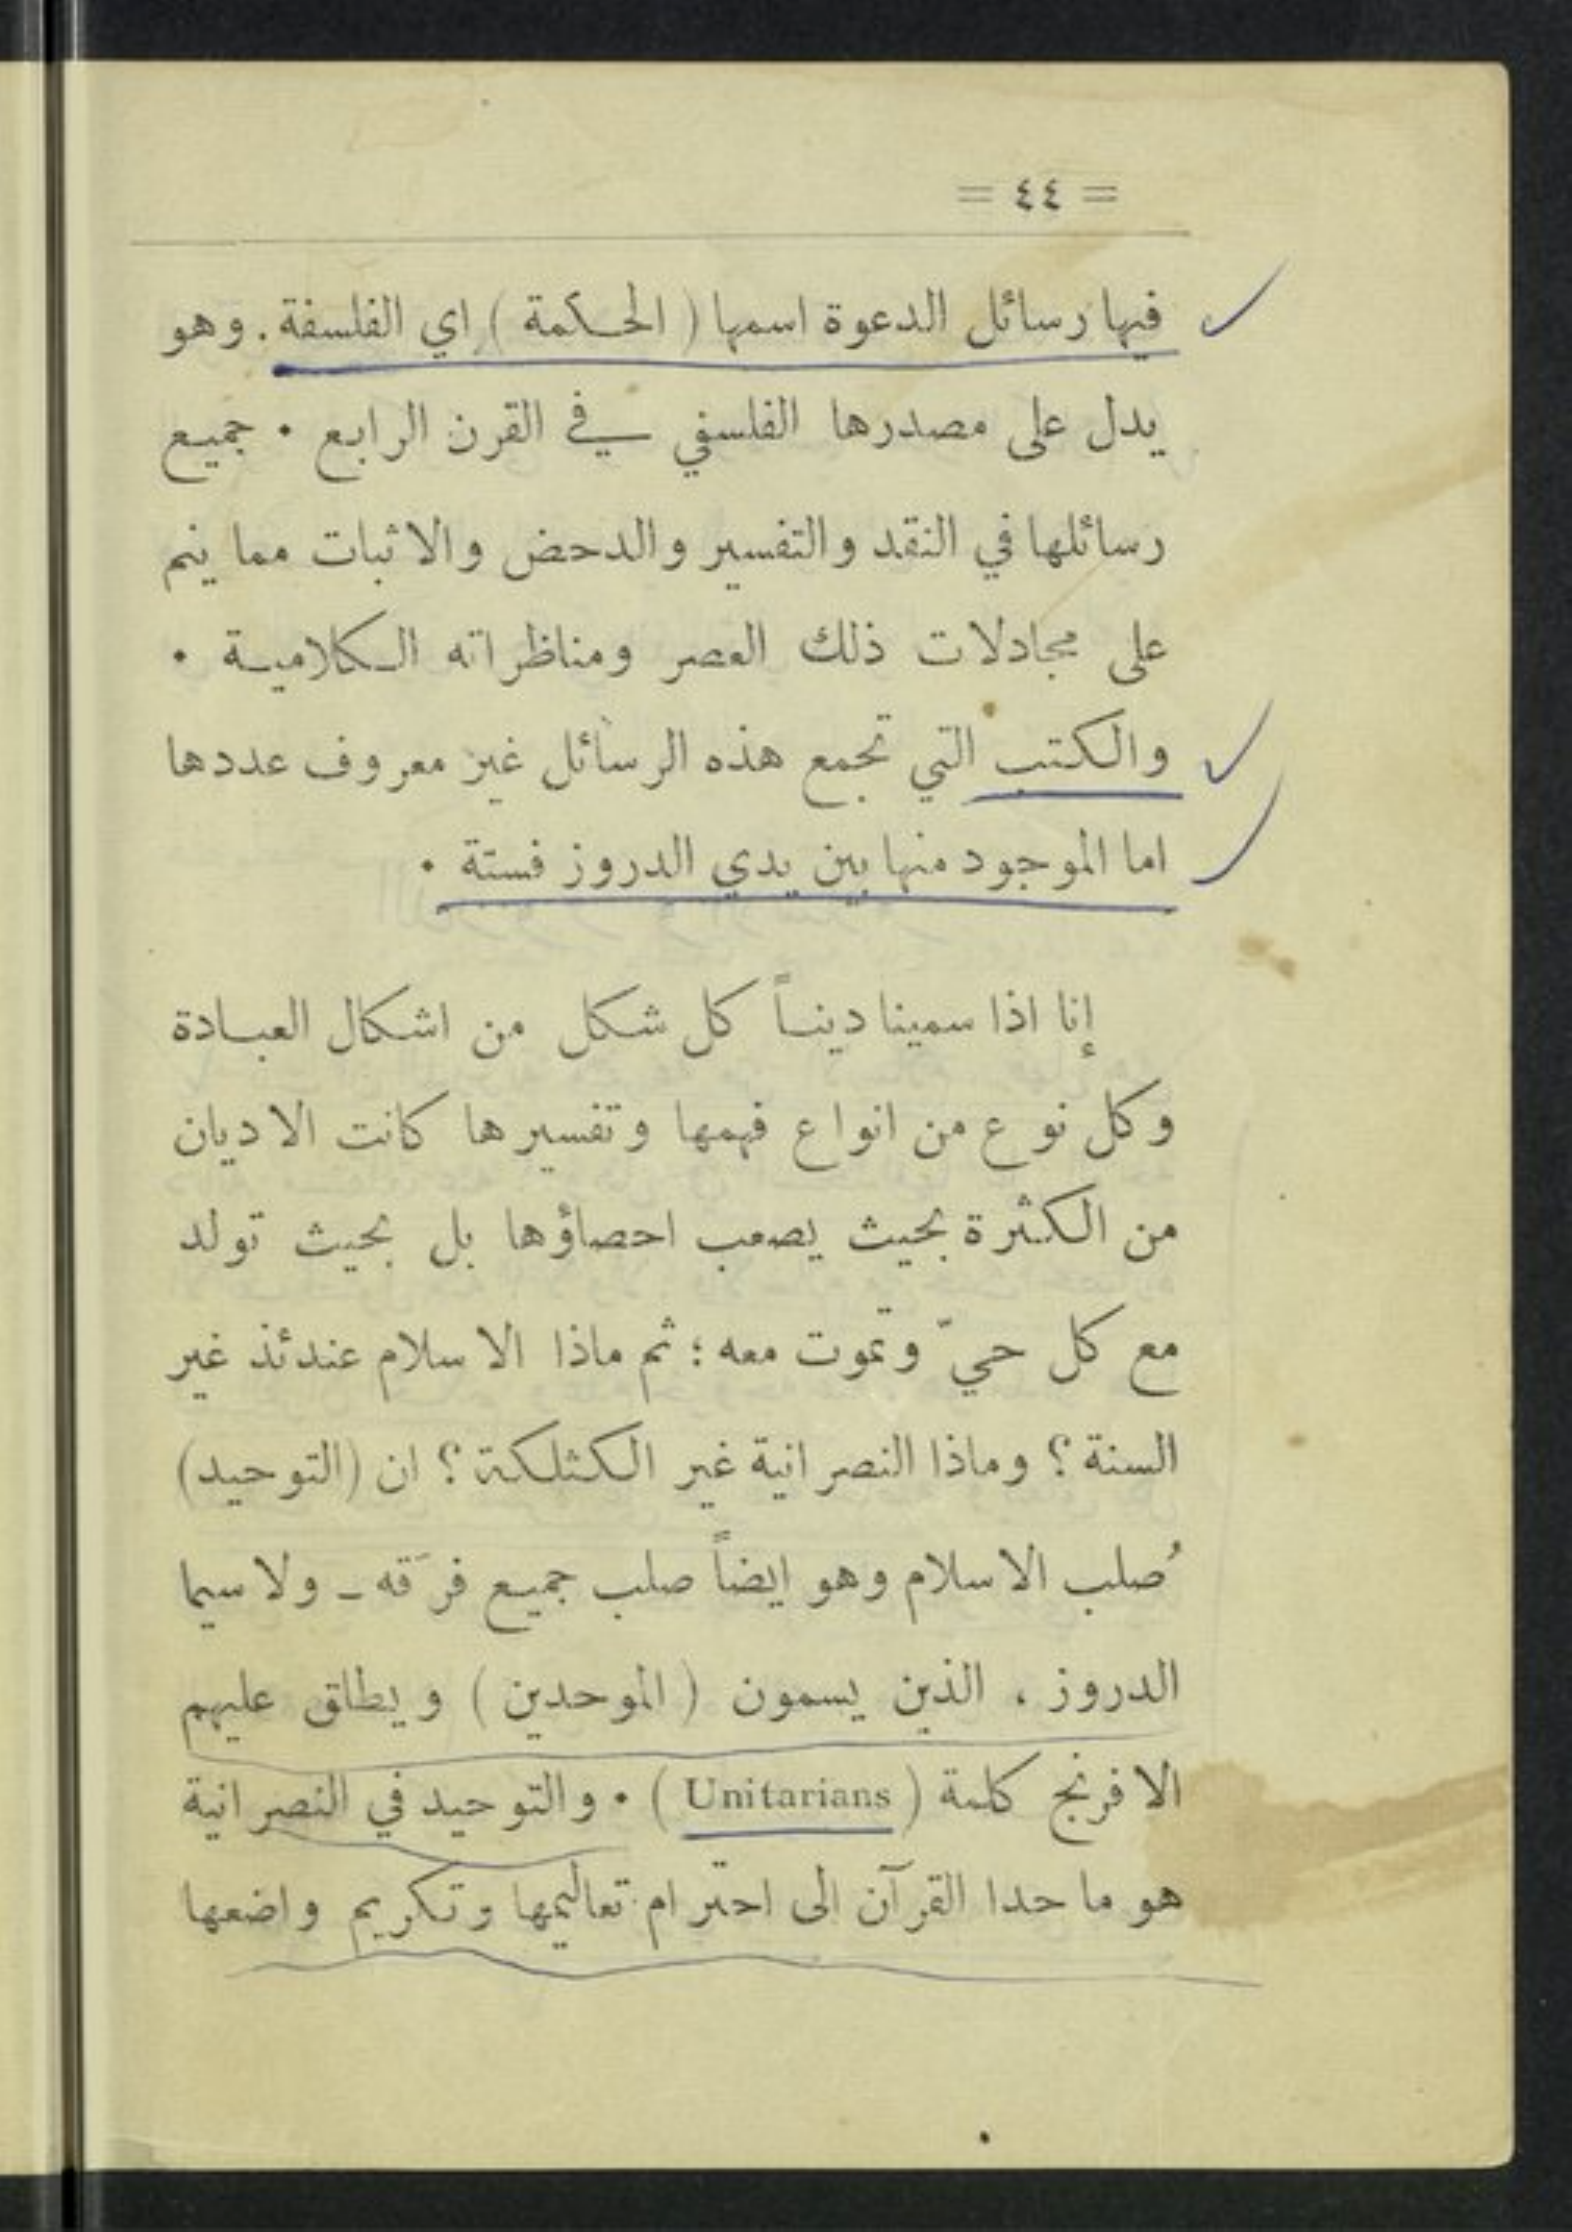 = ٤٤ =
فيها رسائل الدعوة اسمها ( الحكمة ) اي الفلسفة . وهو
يدل على مصدرها الفلسفي في القرن الرابع . جميع
رسائلها في النقد والتفسير والدحض والاثبات مما ينم
على مجادلات ذلك العصر ومناظراته الكلامية .
والكتب التي تجمع هذه الرسائل غير معروف عددها
اما الموجود منها بين يدي الدروز فستة .
إنا اذا سمينا ديناً كل شكل من اشكال العبادة
وكل نوع من انواع فهمها وتفسيرها كانت الاديان
من الكثرة بحيث يصعب احصاؤها بل بحيث تولد
مع كل حيّ وتموت معه ؛ ثم ماذا الاسلام عندئذ غير
السنة ؟ وماذا النصرانية غير الكثلكة ؟ ان (التوحيد)
صُلب الاسلام وهو ايضاً صلب جميع فرَقه ـ ولا سيما
الدروز ، الذين يسمون ( الموحدين ) ويطلق عليهم
الافرنج كلمة ( Unitarians ) . والتوحيد في النصرانية
هو ما حدا القرآن الى احترام تعاليمها وتكريم واضعها